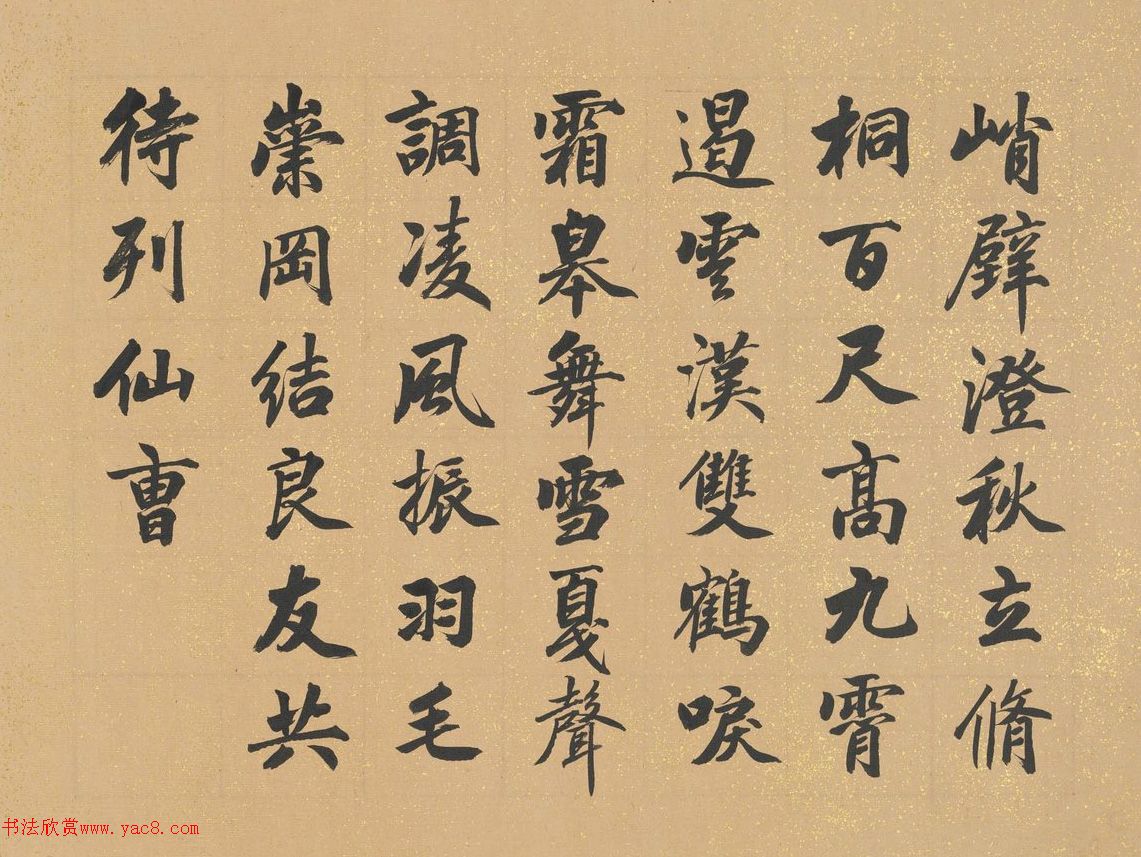 峭壁澄秋立脩
桐百尺髙九霄
遏雲漢雙鶴唳
霜皋舞雪戛聲
調凌風振羽毛
崇岡結良友共
待列仙曹
书法欣赏www.yac8.com